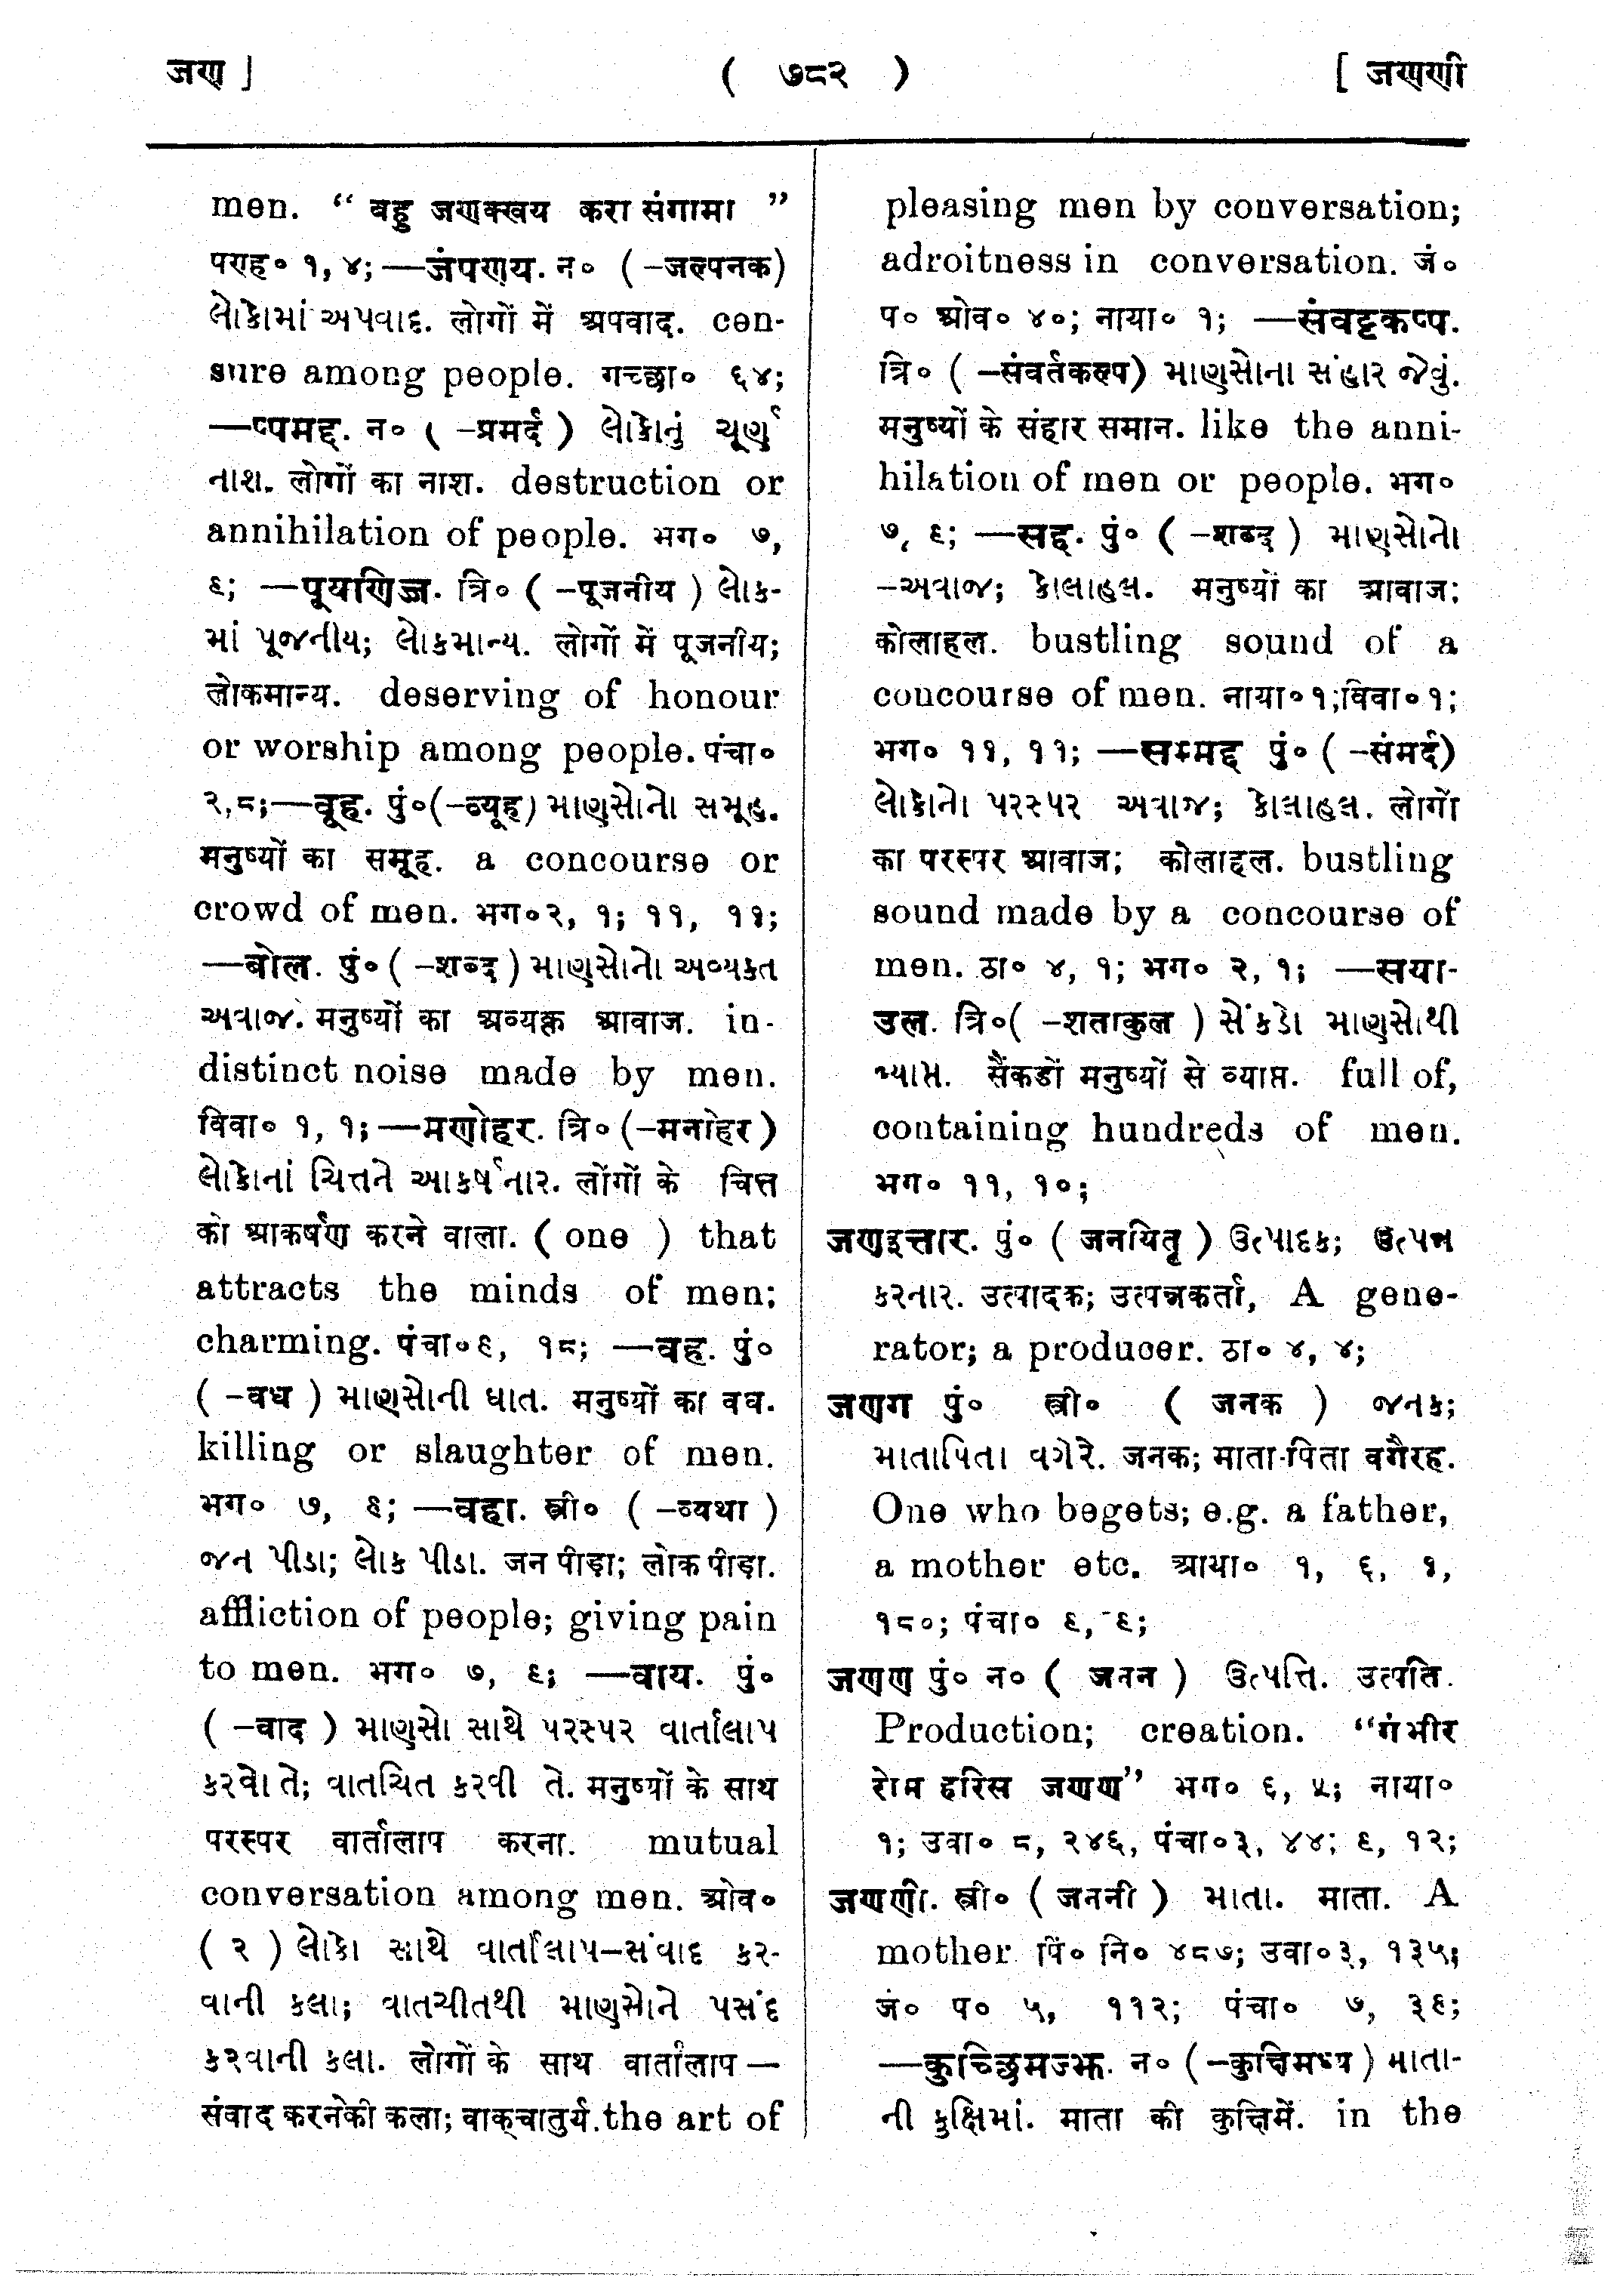 जण ]
( ७८२ )
[ जणणी
men. “ बहु जणक्खय करा संगामा ”
पण्ह० १, ४; —जंपणय. न० ( -जल्पनक)
લોકોમાં અપવાદ. लोगों में अपवाद. cen-
sure among people. गच्छा० ६४;
—प्पमद्द. न० ( -प्रमर्द ) લોકોનું ચૂર્ણ
નાશ. लोगों का नाश. destruction or
annihilation of people. भग० ७,
६; —पूयणिज्ज. त्रि० ( -पूजनीय ) લોક-
માં પૂજનીય; લોકમાન્ય. लोगों में पूजनीय;
लोकमान्य. deserving of honour
or worship among people. पंचा०
२,८;—वूह. पुं०(-व्यूह) માણસોનો સમૂહ.
मनुष्यों का समूह. a concourse or
crowd of men. भग०२, १; ११, ११;
—बोल. पुं० ( -शब्द ) માણસોનો અવ્યક્ત
અવાજ. मनुष्यों का अव्यक्त आवाज. in-
distinct noise made by men.
विवा० १, १; —मणोहर. त्रि० (-मनोहर )
લોકોનાં ચિત્તને આકર્ષનાર. लोंगों के चित्त
को आकर्षण करने वाला. ( one ) that
attracts the minds of men;
charming. पंचा०६, १८; —वह. पुं०
( -वध ) માણસોની ઘાત. मनुष्यों का वध.
killing or slaughter of men.
भग० ७, ६; —वहा. स्त्री० ( -व्यथा )
જન પીડા; લોક પીડા. जन पीड़ा; लोक पीड़ा.
affliction of people; giving pain
to men. भग० ७, ६; —वाय. पुं०
( -वाद ) માણસો સાથે પરસ્પર વાર્તાલાપ
કરવો તે; વાતચિત કરવી તે. मनुष्यों के साथ
परस्पर वार्तालाप करना. mutual
conversation among men. ओव०
( २ ) લોકો સાથે વાર્તાલાપ-સંવાદ કર-
વાની કલા; વાતચીતથી માણસોને પસંદ
કરવાની કલા. लोगों के साथ वार्तालाप—
संवाद करनेकी कला; वाक्चातुर्य. the art of
pleasing men by conversation;
adroitness in conversation. जं०
प० ओव० ४०; नाया० १; —संवट्टकप्प.
त्रि० ( -संवर्तकल्प) માણસોના સંહાર જેવું.
मनुष्यों के संहार समान. like the anni-
hilation of men or people. भग०
७, ६; —सद्द. पुं० ( -शब्द ) માણસોનો
-અવાજ; કોલાહલ. मनुष्यों का आवाज;
कोलाहल. bustling sound of a
concourse of men. नाया०१;विवा०१;
भग० ११, ११; —सम्मद्द पुं० ( -संमर्द)
લોકોનો પરસ્પર અવાજ; કોલાહલ. लोगों
का परस्पर आवाज; कोलाहल. bustling
sound made by a concourse of
men. ठा० ४, १; भग० २, १; —सया-
उल. त्रि०( -शताकुल ) સેંકડો માણસોથી
વ્યાપ્ત. सैंकडों मनुष्यों से व्याप्त. full of,
containing hundreds of men.
भग० ११, १०;
जणइत्तार. पुं० ( जनयितृ ) ઉત્પાદક; ઉત્પન્ન
કરનાર. उत्पादक; उत्पन्नकर्ता, A gene-
rator; a producer. ठा० ४, ४;
जणग पुं० स्त्री० ( जनक ) જનક;
માતાપિતા વગેરે. जनक; माता-पिता वगैरह.
One who begets; e.g. a father,
a mother etc. आया० १, ६, १,
१८०; पंचा० ६, ६;
जणण पुं० न० ( जनन ) ઉત્પત્તિ. उत्पति.
Production; creation. “गंभीर
रोम हरिस जणण” भग० ६, ५; नाया०
१; उवा० ८, २४६, पंचा०३, ४४; ६, १२;
जणणी. स्त्री० ( जननी ) માતા. माता. A
mother पिं० नि० ४८७; उवा०३, १३५;
जं० प० ५, ११२; पंचा० ७, ३६;
—कुच्छिमज्झ. न० (-कुक्षिमध्य ) માતા-
ની કુક્ષિમાં. माता की कुक्षिमें. in the